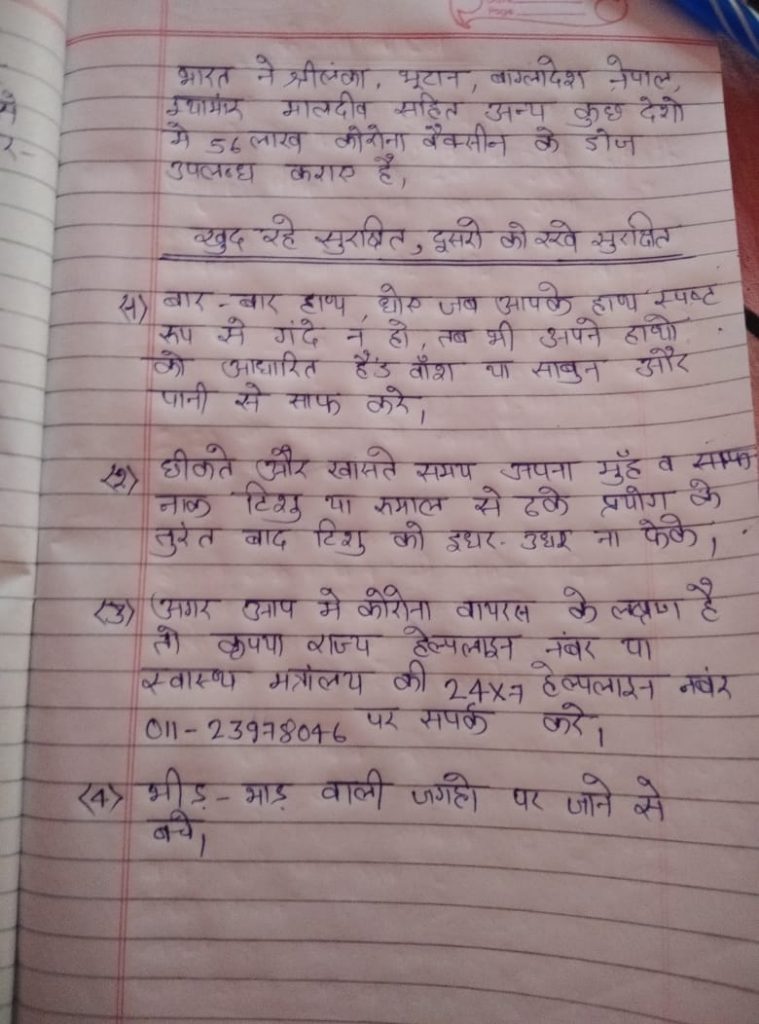 भारत ने श्रीलंका, भूटान, बाग्लादेश नेपाल,
म्यांमार मालदीव सहित अन्य कुछ देशो
मे 56 लाख कोरोना वैक्सीन के डोज
उपलब्ध कराए है,
खुद रहे सुरक्षित, दूसरो को रखे सुरक्षित
(1) बार-बार हाथ धोए जब आपके हाथ स्पष्ट
रूप से गंदे न हो, तब भी अपने हाथो
को आधारित हैंड वॉश या साबुन और
पानी से साफ करे,
(2) छीकते और खासते समय अपना मुँह व
नाक टिशु या रुमाल से ढके प्रयोग के
तुरंत बाद टिशु को इधर-उधर ना फेके,
(3) अगर आप मे कोरोना वायरस के लक्षण है
तो कृपया राज्य हेल्पलाइन नंबर या
स्वास्थ मत्रांलय की 24x7 हेल्पलाइन नबंर
011-23978046 पर सपर्क करे,
(4) भीड़-भाड़ वाली जगहो पर जाने से
बचे,